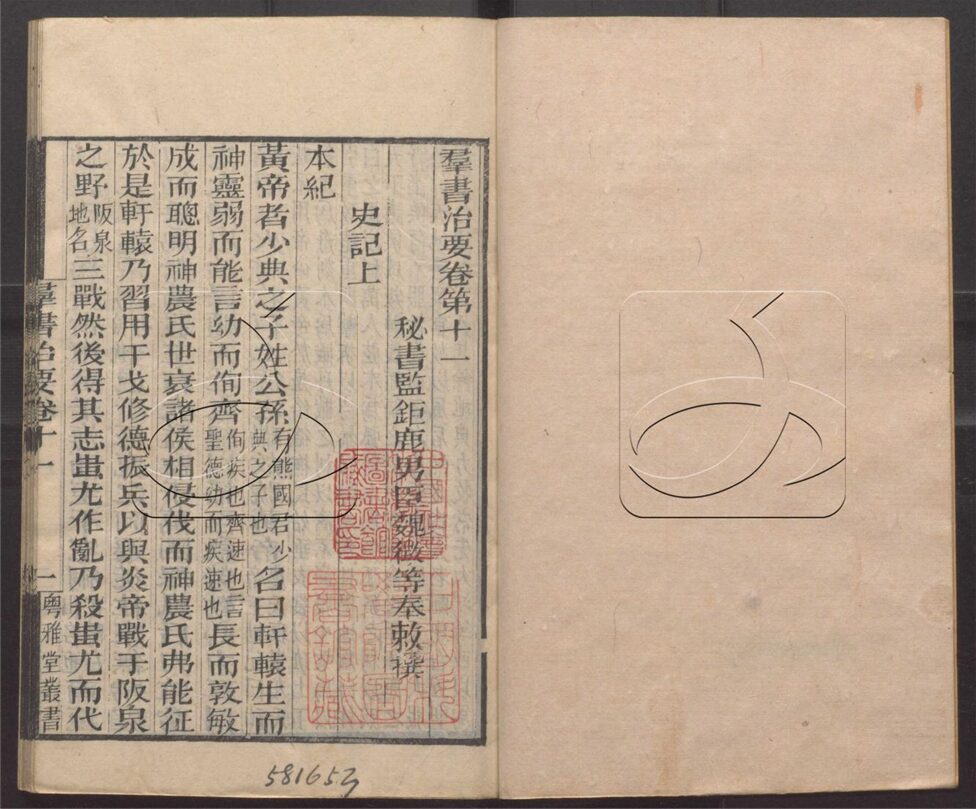 羣書治要卷第十一
秘書監鉅鹿男臣魏徵等奉敕撰
史記上
本紀
黃帝者少典之子姓公孫有熊國君少典之子也名曰軒轅生而
神靈弱而能言幼而侚齊侚疾也齊速也言聖德幼而疾速也長而敦敏
成而聰明神農氏世衰諸侯相侵伐而神農氏弗能征
於是軒轅乃習用干戈修德振兵以與炎帝戰于阪泉
之野阪泉地名三戰然後得其志蚩尤作亂乃殺蚩尤而代
羣書治要卷十一
一
粵雅堂叢書
581653